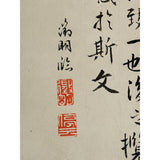 致一也後之攬
感於斯文
徵明臨